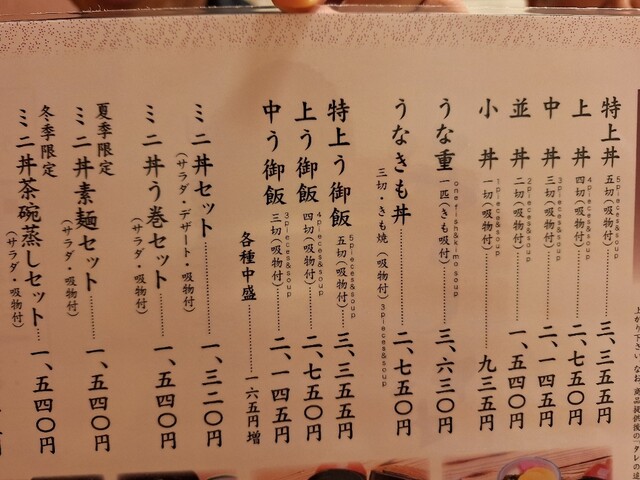 特上丼 五切（吸物付） 5pieces&soup 三、三五五円
上丼 四切（吸物付） 4pieces&soup 二、七五〇円
中丼 三切（吸物付） 3pieces&soup 二、一四五円
並丼 二切（吸物付） 2pieces&soup 一、五四〇円
小丼 一切（吸物付） 1piece&soup 九三五円
うな重 一匹（きも吸付） one fish&kimo soup 三、六三〇円
うなきも丼 二、七五〇円
三切・きも焼（吸物付）3pieces&soup
特上う御飯 五切（吸物付） 5pieces&soup 三、三五五円
上う御飯 四切（吸物付） 4pieces&soup 二、七五〇円
中う御飯 三切（吸物付） 3pieces&soup 二、一四五円
各種中盛 一六五円増
ミニ丼セット 一、三二〇円
（サラダ・デザート・吸物付）
ミニ丼う巻セット 一、五四〇円
（サラダ・吸物付）
夏季限定
ミニ丼素麺セット 一、五四〇円
（サラダ・吸物付）
冬季限定
ミニ丼茶碗蒸しセット 一、五四〇円
（サラダ・吸物付）